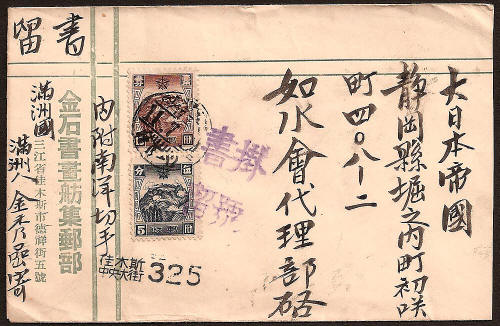 書留
大日本帝國
静岡縣堀之内町初咲
町四〇八ノ二
如水會代理部
掛號
書
5
內附南洋切手
佳木斯
中央大街
325
金石書畫舫集郵部
三江省佳木斯市德祥街五號
滿洲國
滿洲人
金
寄